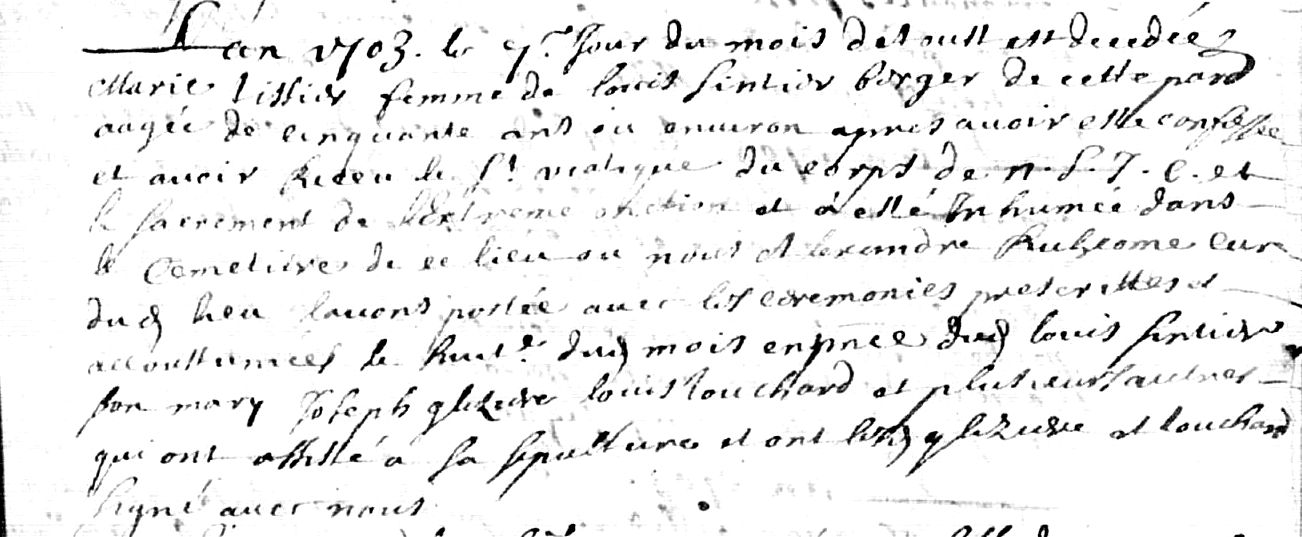 Lan 1703. le 7.e Jour du mois daoust est decedée
Marie tissier femme de louis sintier berger de cette paro
aagée de cinquante ans ou environ apres avoir esté confessée
et avoir Receu le St. viatique du corps de n. S. J. C. et
le sacrement de lExtreme onction et a esté Inhumée dans
le Cemetiere de ce lieu ou nous Alexandre cure
dud lieu lavons portée avec les ceremonies prescrittes et
accoustumées le huit.e dud mois en pnce dud louis sintier
son mary Joseph gliziere louis touchard et plusieurs autres
qui ont assisté a sa sepulture et ont lesd gliziere et touchard
signé avec nous